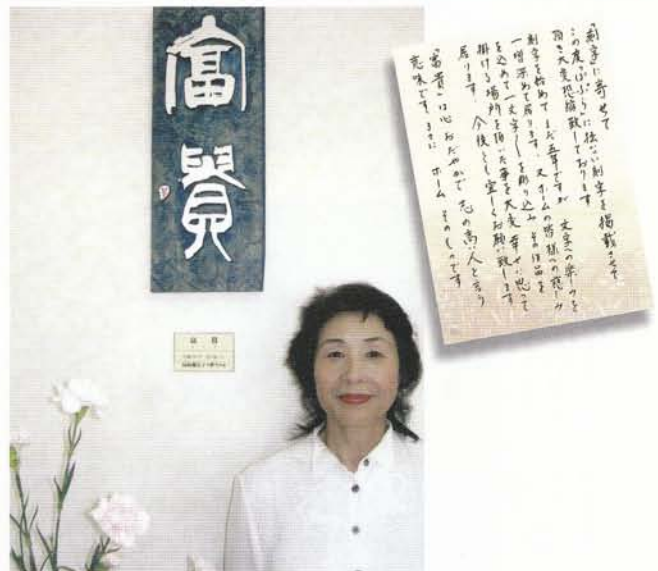 富貴
富貴
「刻字」に寄せて
この度“ぷぷら”に拙ない刻字を掲載させて
頂き大変恐縮致しております
刻字を始めてまだ五年ですが 文字への楽しみを
一層深めて居ります、又ホームの皆様への思い
を込めて一文字一文字を彫り込み その作品を
掛ける場所を頂いた事を大変幸せに思って
居ります 今後とも宜しくお願い致します
“富貴”は心おだやかで志の高い人と言う
意味です まさに ホーム そのものです